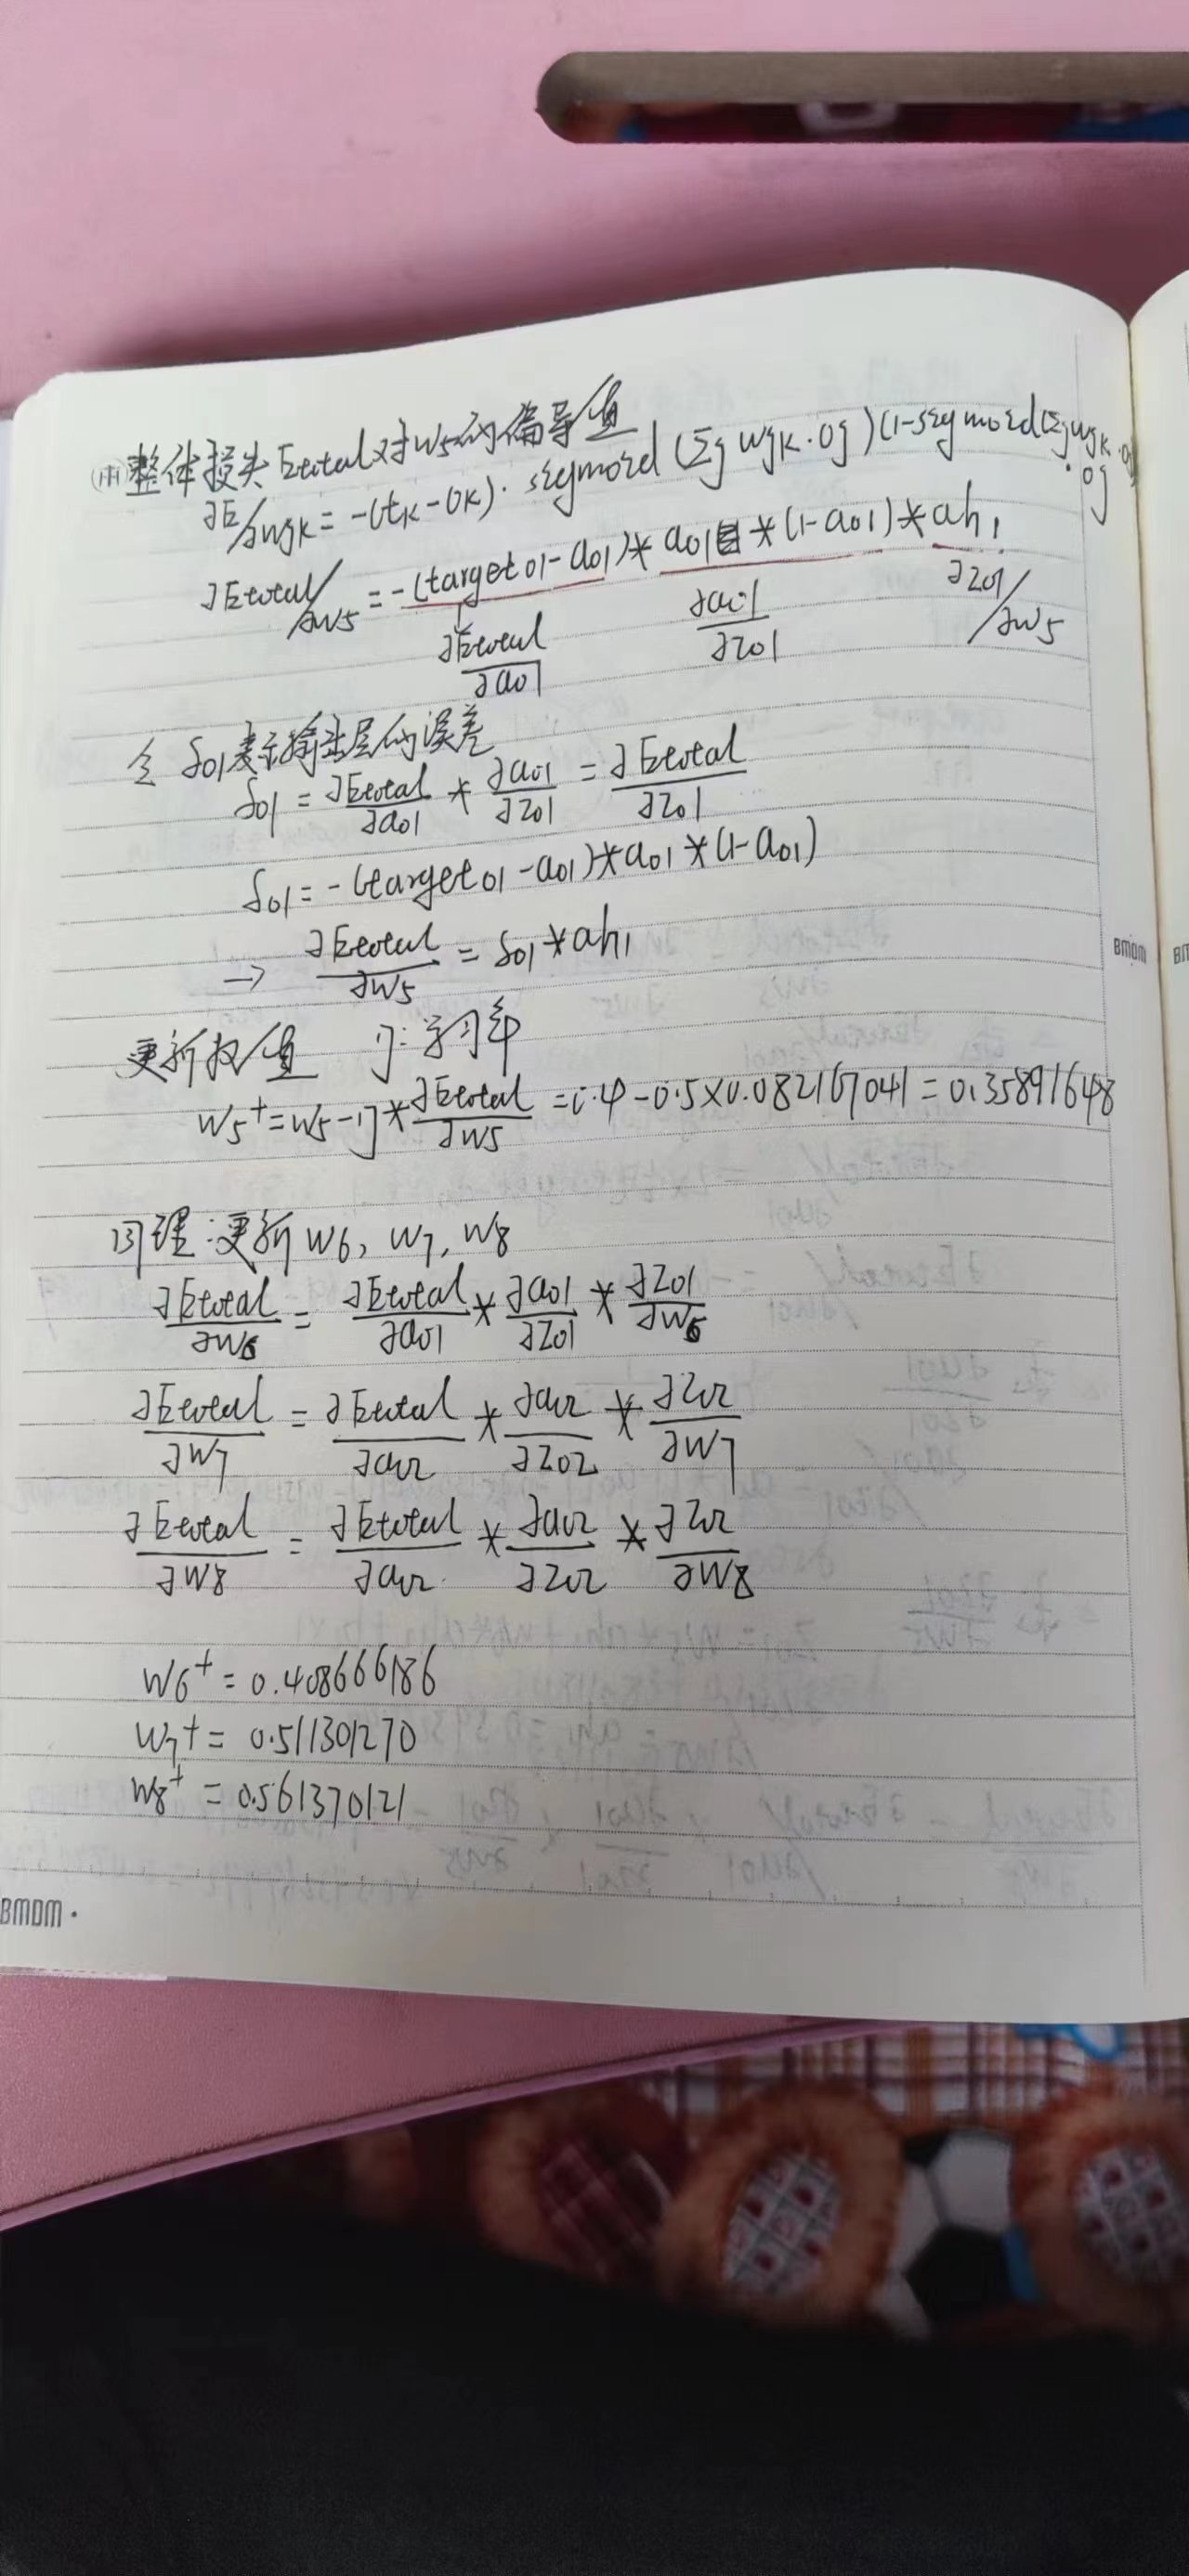 (四)整体损失Etotal对w5的偏导值
∂E/∂wjk = -(tk-ok)· sigmoid (Σj wjk·oj)(1-sigmoid(Σj wjk·oj
∂Etotal/∂w5 = -(target01-a01)* a01 *(1-a01)*ah1
∂Etotal/∂a01 ∂a01/∂z01 ∂z01/∂w5
令 δ01表示输出层的误差
δ01 = ∂Etotal/∂a01 * ∂a01/∂z01 = ∂Etotal/∂z01
δ01 = -(target01-a01)*a01*(1-a01)
→ ∂Etotal/∂w5 = δ01*ah1
更新权值 η:学习率
w5+=w5-η*∂Etotal/∂w5 =0.4-0.5×0.082167041=0.35891648
同理:更新w6, w7, w8
∂Etotal/∂w6 = ∂Etotal/∂a01 * ∂a01/∂z01 * ∂z01/∂w6
∂Etotal/∂w7 = ∂Etotal/∂a02 * ∂a02/∂z02 * ∂z02/∂w7
∂Etotal/∂w8 = ∂Etotal/∂a02 * ∂a02/∂z02 * ∂z02/∂w8
w6+ = 0.408666186
w7+ = 0.511301270
w8+ = 0.561370121
BMDM
BMDM